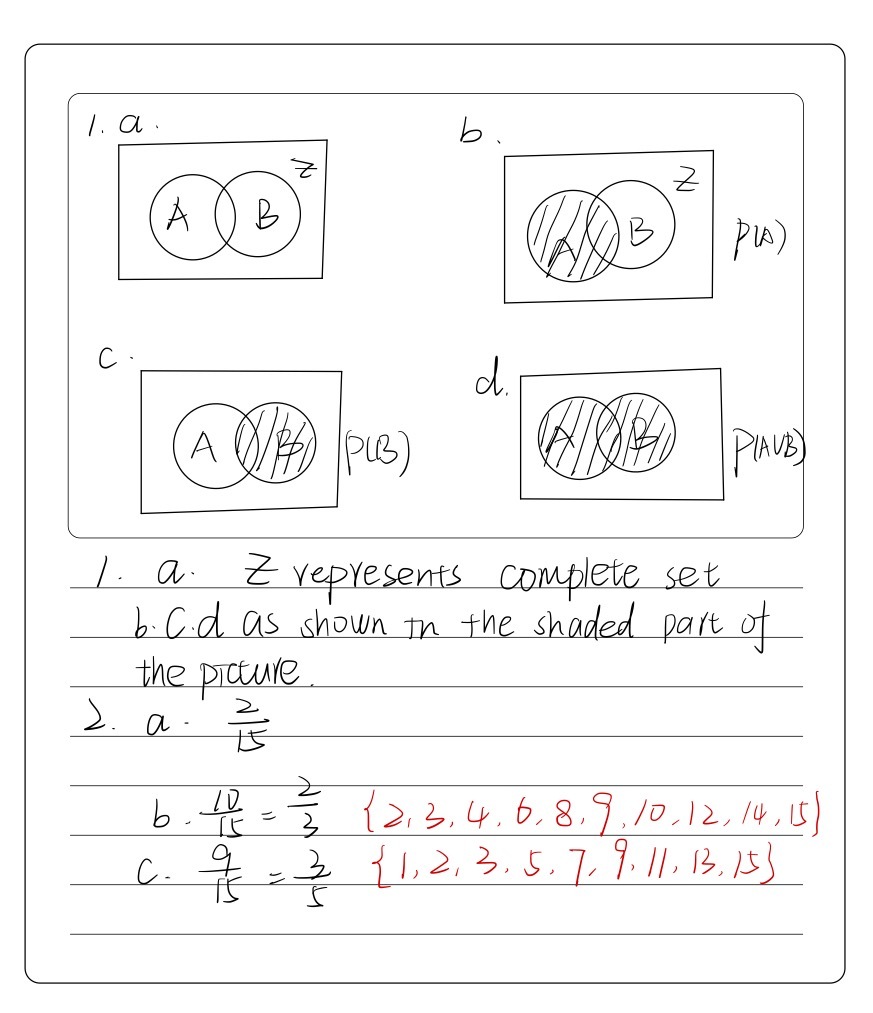 1. a.
A B Z
b.
A B Z
P(A)
c.
A B
P(B)
d.
A B
P(A∪B)
1. a. Z represents complete set
b.c.d as shown in the shaded part of
the picture.
2. a. 2/15
b. 10/15 = 2/3 {2, 3, 4, 6, 8, 9, 10, 12, 14, 15}
c. 9/15 = 3/5 {1, 2, 3, 5, 7, 9, 11, 13, 15}